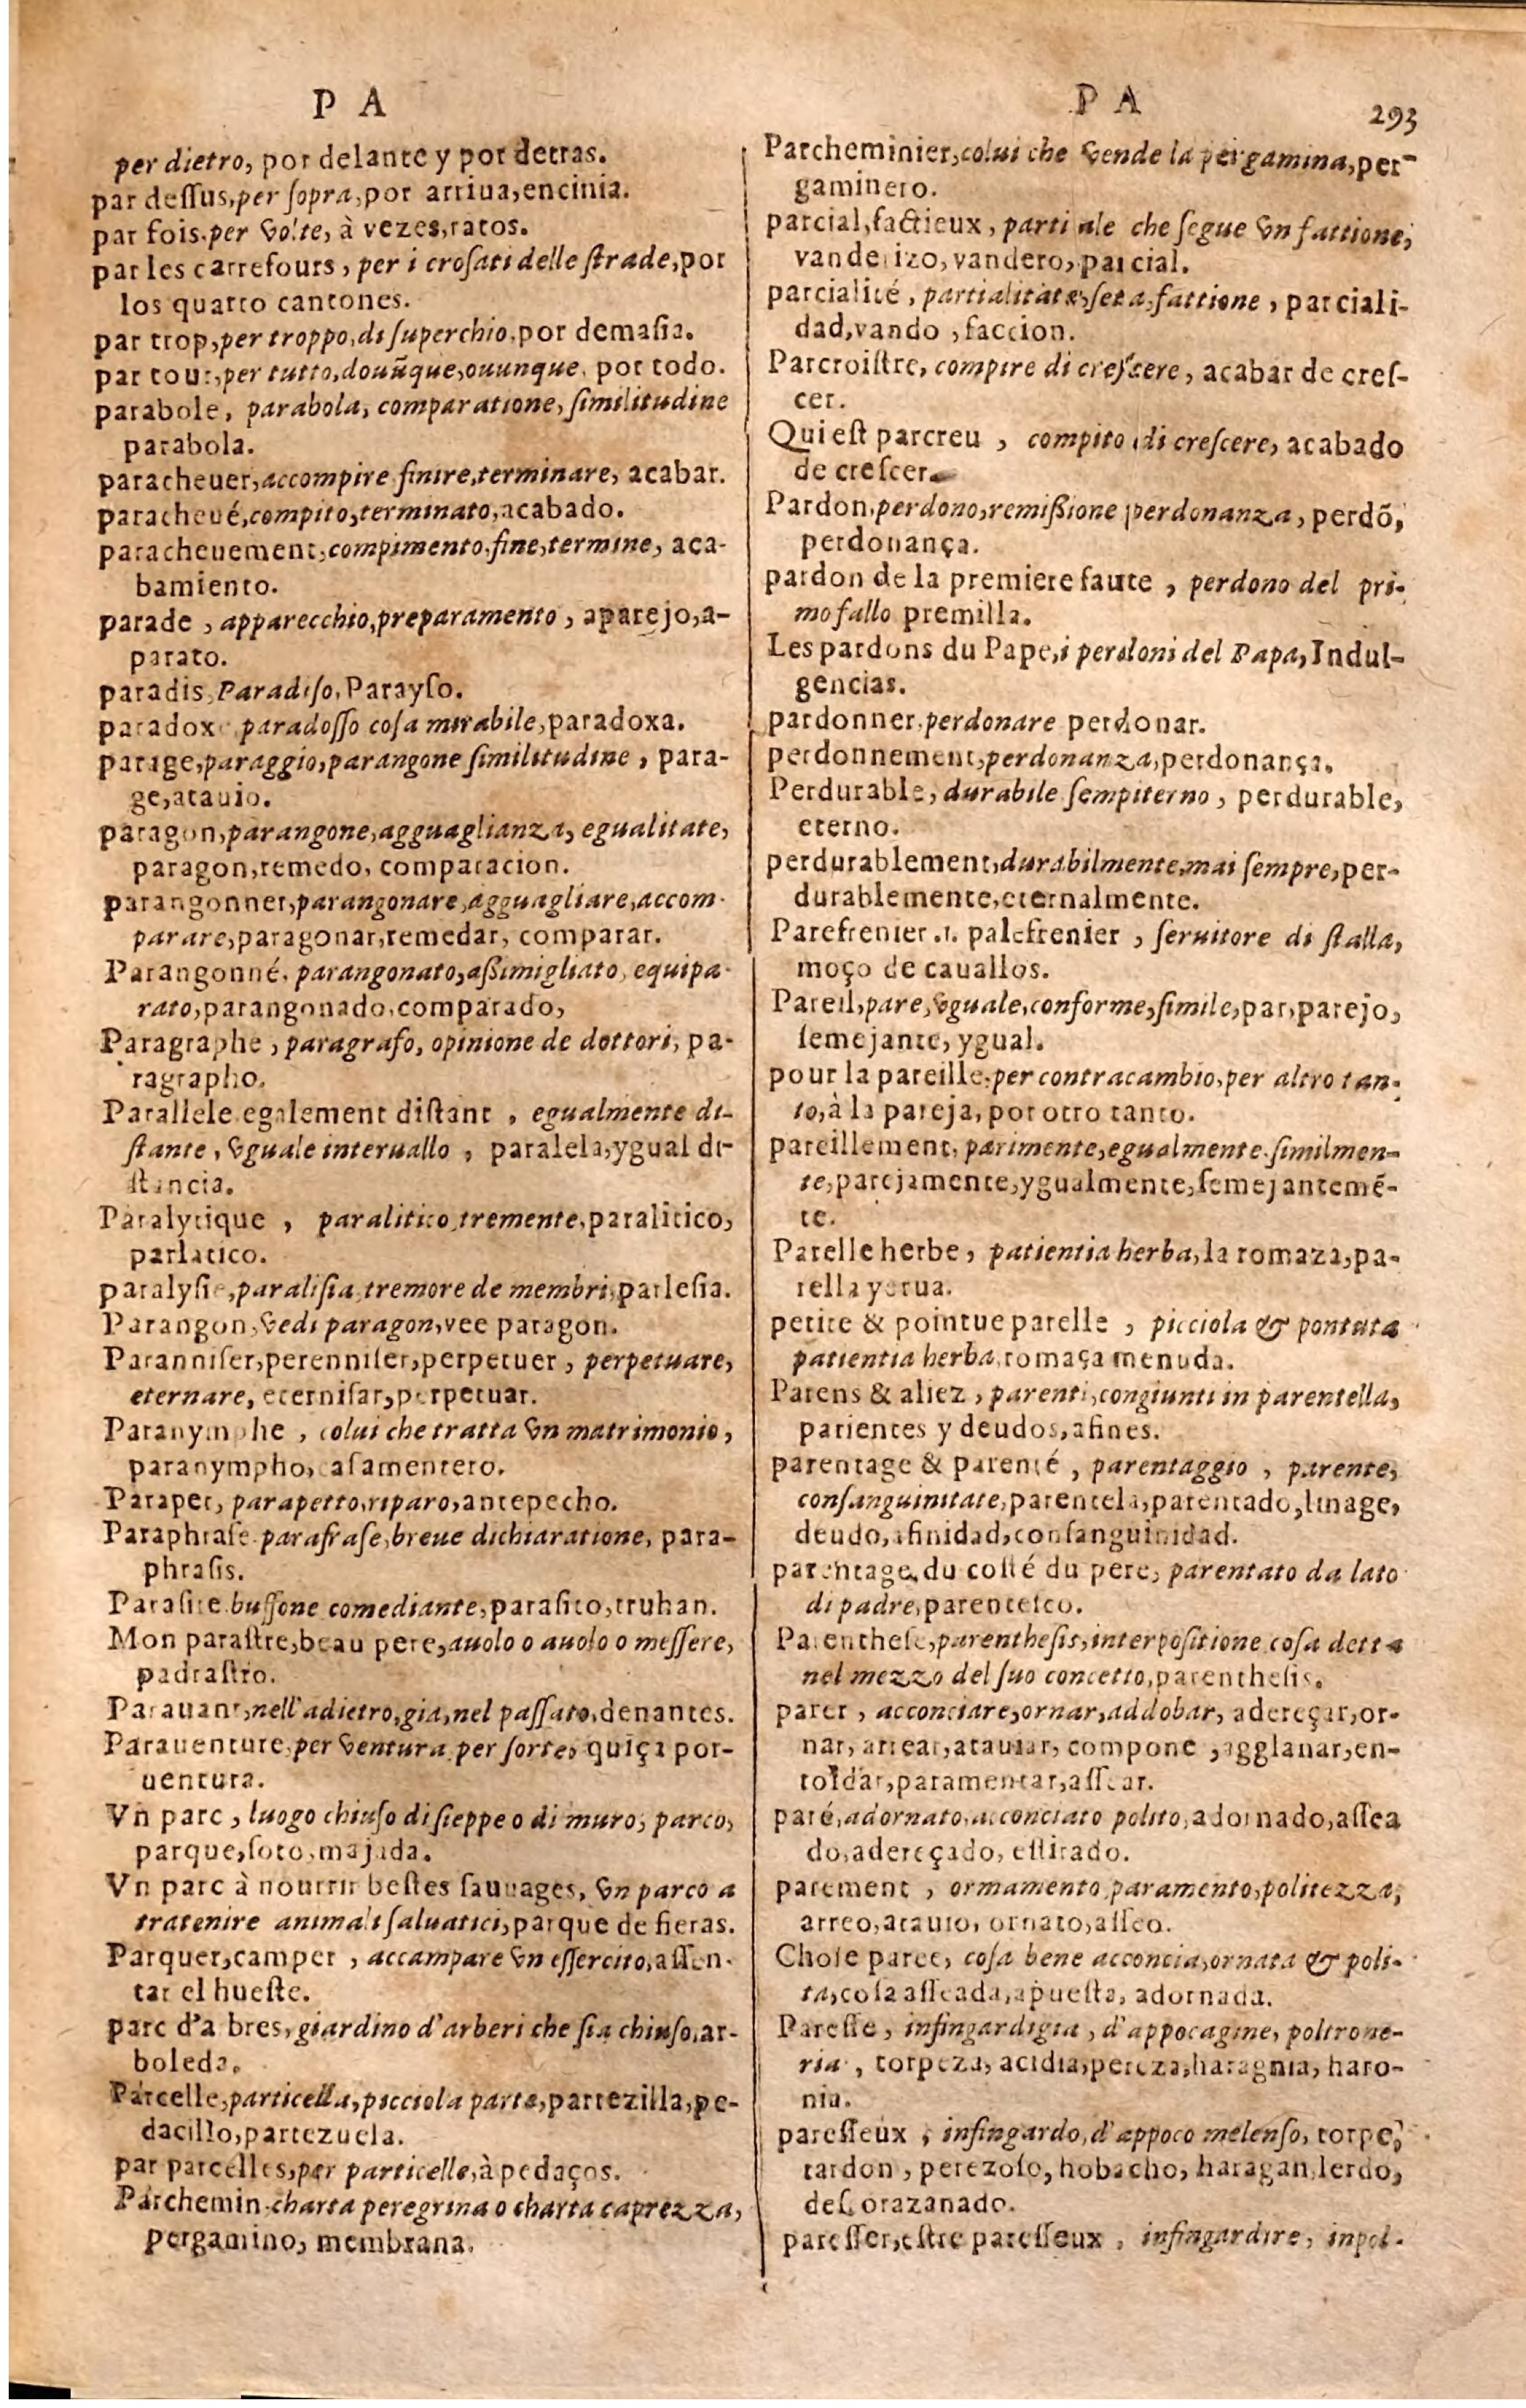 P A
per dietro, por delante y por detras.
par deſſus, per ſopra, por arriua, encinia.
par fois. per volte, à vezes, ratos.
par les carrefours, per i croſati delle ſtrade, por
los quatro cantones.
par trop, per troppo, di ſuperchio, por demaſia.
par tout, per tutto, douũque, ouunque, por todo.
parabole, parabola, comparatione, ſimilitudine
parabola.
paracheuer, accompire finire, terminare, acabar.
paracheué, compito, terminato, acabado.
paracheuement, compimento, fine, termine, aca-
bamiento.
parade, apparecchio, preparamento, aparejo, a-
parato.
paradis, Paradiſo, Parayſo.
paradoxe paradoſſo coſa mirabile, paradoxa.
parage, paraggio, parangone ſimilitudine, para-
ge, atauio.
paragon, parangone, agguaglianza, egualitate,
paragon, remedo, comparacion.
parangonner, parangonare, agguagliare, accom-
parare, paragonar, remedar, comparar.
Parangonné, parangonato, aßimigliato, equipa-
rato, parangonado, comparado,
Paragraphe, paragrafo, opinione de dottori, pa-
ragrapho.
Parallele egalement diſtant, egualmente di-
ſtante, vguale interuallo, paralela, ygual di-
ſtancia.
Paralytique, paralitico, tremente, paralitico,
parlatico.
paralyſie, paraliſia, tremore de membri, parleſia.
Parangon, vedi paragon, vee paragon.
Paranniſer, perenniſer, perpetuer, perpetuare,
eternare, eterniſar, perpetuar.
Paranymphe, colui che tratta vn matrimonio,
paranympho, caſamentero.
Parapet, parapetto, riparo, antepecho.
Paraphraſe. parafraſe, breue dichiaratione, para-
phraſis.
Paraſite. buffone comediante, paraſito, truhan.
Mon paraſtre, beau pere, auolo o auolo o meſſere,
padraſtro.
Parauant, nell'adietro, gia, nel paſſato, denantes.
Parauenture, per ventura per ſorte, quiça por-
uentura.
Vn parc, luogo chiuſo di ſieppe o di muro, parco,
parque, ſoto, majada.
Vn parc à nourrir beſtes ſauuages, vn parco a
tratenire animali ſaluatici, parque de fieras.
Parquer, camper, accampare vn eſſercito, aſſen-
tar el hueſte.
parc d'a bres, giardino d'arberi che ſia chiuſo, ar-
boleda.
Parcelle, particella, picciola parte, partezilla, pe-
dacillo, partezuela.
par parcelles, per particelle, à pedaços.
Parchemin. charta peregrina o charta caprezza,
pergamino, membrana.
P A 293
Parcheminier, colui che vende la pergamina, per-
gaminero.
parcial, factieux, partiale che ſegue vn fattione,
vanderizo, vandero, parcial.
parcialité, partialitate, ſeta, fattione, parciali-
dad, vando, faccion.
Parcroiſtre, compire di creſcere, acabar de creſ-
cer.
Qui eſt parcreu, compito di creſcere, acabado
de creſcer.
Pardon, perdono, remißione perdonanza, perdõ,
perdonança.
pardon de la premiere faute, perdono del pri-
mo fallo premilla.
Les pardons du Pape, i perdoni del Papa, Indul-
gencias.
pardonner, perdonare perdonar.
perdonnement, perdonanza, perdonança.
Perdurable, durabile ſempiterno, perdurable,
eterno.
perdurablement, durabilmente, mai ſempre, per-
durablemente, eternalmente.
Parefrenier .1. palefrenier, ſeruitore di ſtalla,
moço de cauallos.
Pareil, pare, vguale, conforme, ſimile, par, parejo,
ſemejante, ygual.
pour la pareille, per contracambio, per altro tan-
to, à la pareja, por otro tanto.
pareillement, parimente, egualmente. ſimilmen-
te, parejamente, ygualmente, ſemejantemẽ-
te.
Parelle herbe, patientia herba, la romaza, pa-
rella yerua.
petite & pointue parelle, picciola & pontuta
patientia herba, romaça menuda.
Parens & aliez, parenti, congiunti in parentella,
parientes y deudos, afines.
parentage & parenté, parentaggio, parente,
conſanguinitate, parentela, parentado, linage,
deudo, afinidad, conſanguinidad.
parentage, du coſté du pere, parentato da lato
di padre, parenteſco.
Parentheſe, parentheſis, interpoſitione coſa detta
nel mezzo del ſuo concetto, parentheſis.
parer, acconciare, ornar, addobar, adereçar, or-
nar, arrear, atauiar, compone, agglanar, en-
toldar, paramentar, aſſear.
paré, adornato, acconciato polito, adornado, aſſea
do, adereçado, eſtirado.
parement, ormamento, paramento, politezza,
arreo, atauio, ornato, aſſeo.
Choſe paree, coſa bene acconcia, ornata & poli-
ta, coſa aſſeada, apueſta, adornada.
Pareſſe, infingardigia, d'appocagine, poltrone-
ria, torpeza, acidia, pereza, haragnia, haro-
nia.
pareſſeux, infingardo, d'appoco melenſo, torpe,
tardon, perezoſo, hobacho, haragan, lerdo,
deſcorazanado.
pareſſer, eſtre pareſſeux, infingardire, inpol-